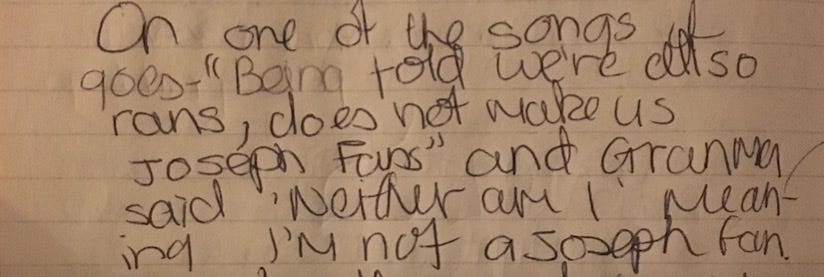 On one of the songs it
goes-"Being told we're also
rans, does not make us
Joseph Fans" and Granma
said 'Neither am I' Mean-
ing I'm not a Joseph fan.